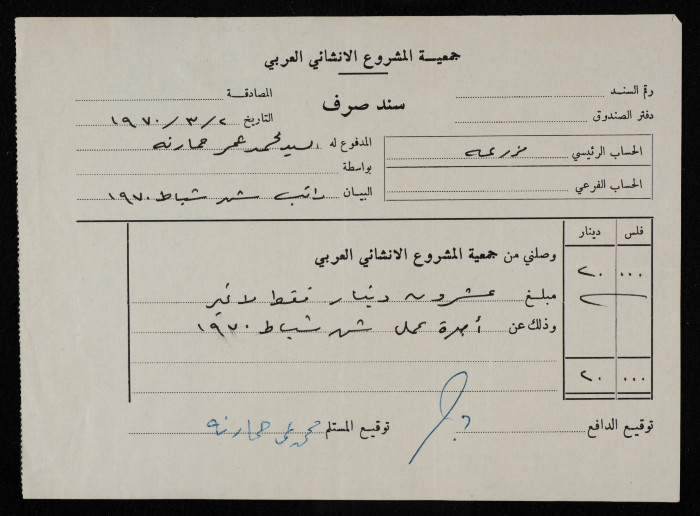 جمعيـــة المشروع الانشائي العربي
رقم السنـد
المصادقـة
سند صرف
دفتر الصندوق
التاريخ ٢ / ٣ / ١٩٧٠
الحساب الرئيسي مزرعه
المدفوع له السيد محمد عمر حمارنه
بواسطة
الحساب الفرعي
البيـان راتب شهر شباط ١٩٧٠
فلس دينار
وصلني من جمعية المشروع الانشائي العربي
٠٠٠ ٢٠
مبلـغ عشرون دينار فقط لا غير
وذلك عن أجرة عمل شهر شباط ١٩٧٠
٠٠٠ ٢٠
توقيـع الدافع
توقيـع المستلم محمد عمر حمارنه